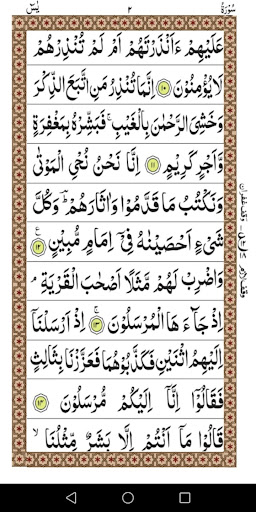 سُوْرَةُ ٢ يٰسٓ
عَلَيْهِمْ ءَاَنْذَرْتَهُمْ اَمْ لَمْ تُنْذِرْهُمْ
لَا يُؤْمِنُوْنَ ۝١٠ اِنَّمَا تُنْذِرُ مَنِ اتَّبَعَ الذِّكْرَ
وَخَشِيَ الرَّحْمٰنَ بِالْغَيْبِ ۚ فَبَشِّرْهُ بِمَغْفِرَةٍ
وَّاَجْرٍ كَرِيْمٍ ۝١١ اِنَّا نَحْنُ نُحْيِ الْمَوْتٰى
وَنَكْتُبُ مَا قَدَّمُوْا وَاٰثَارَهُمْ ؕ وَكُلَّ
شَيْءٍ اَحْصَيْنٰهُ فِيْٓ اِمَامٍ مُّبِيْنٍ ۝١٢ ع
وَاضْرِبْ لَهُمْ مَّثَلًا اَصْحٰبَ الْقَرْيَةِ ۘ
اِذْ جَآءَهَا الْمُرْسَلُوْنَ ۝١٣ اِذْ اَرْسَلْنَاۤ
اِلَيْهِمُ اثْنَيْنِ فَكَذَّبُوْهُمَا فَعَزَّزْنَا بِثَالِثٍ
فَقَالُوْۤا اِنَّاۤ اِلَيْكُمْ مُّرْسَلُوْنَ ۝١٤
قَالُوْا مَاۤ اَنْتُمْ اِلَّا بَشَرٌ مِّثْلُنَا ۙ
وقف غفران
وقف لازم